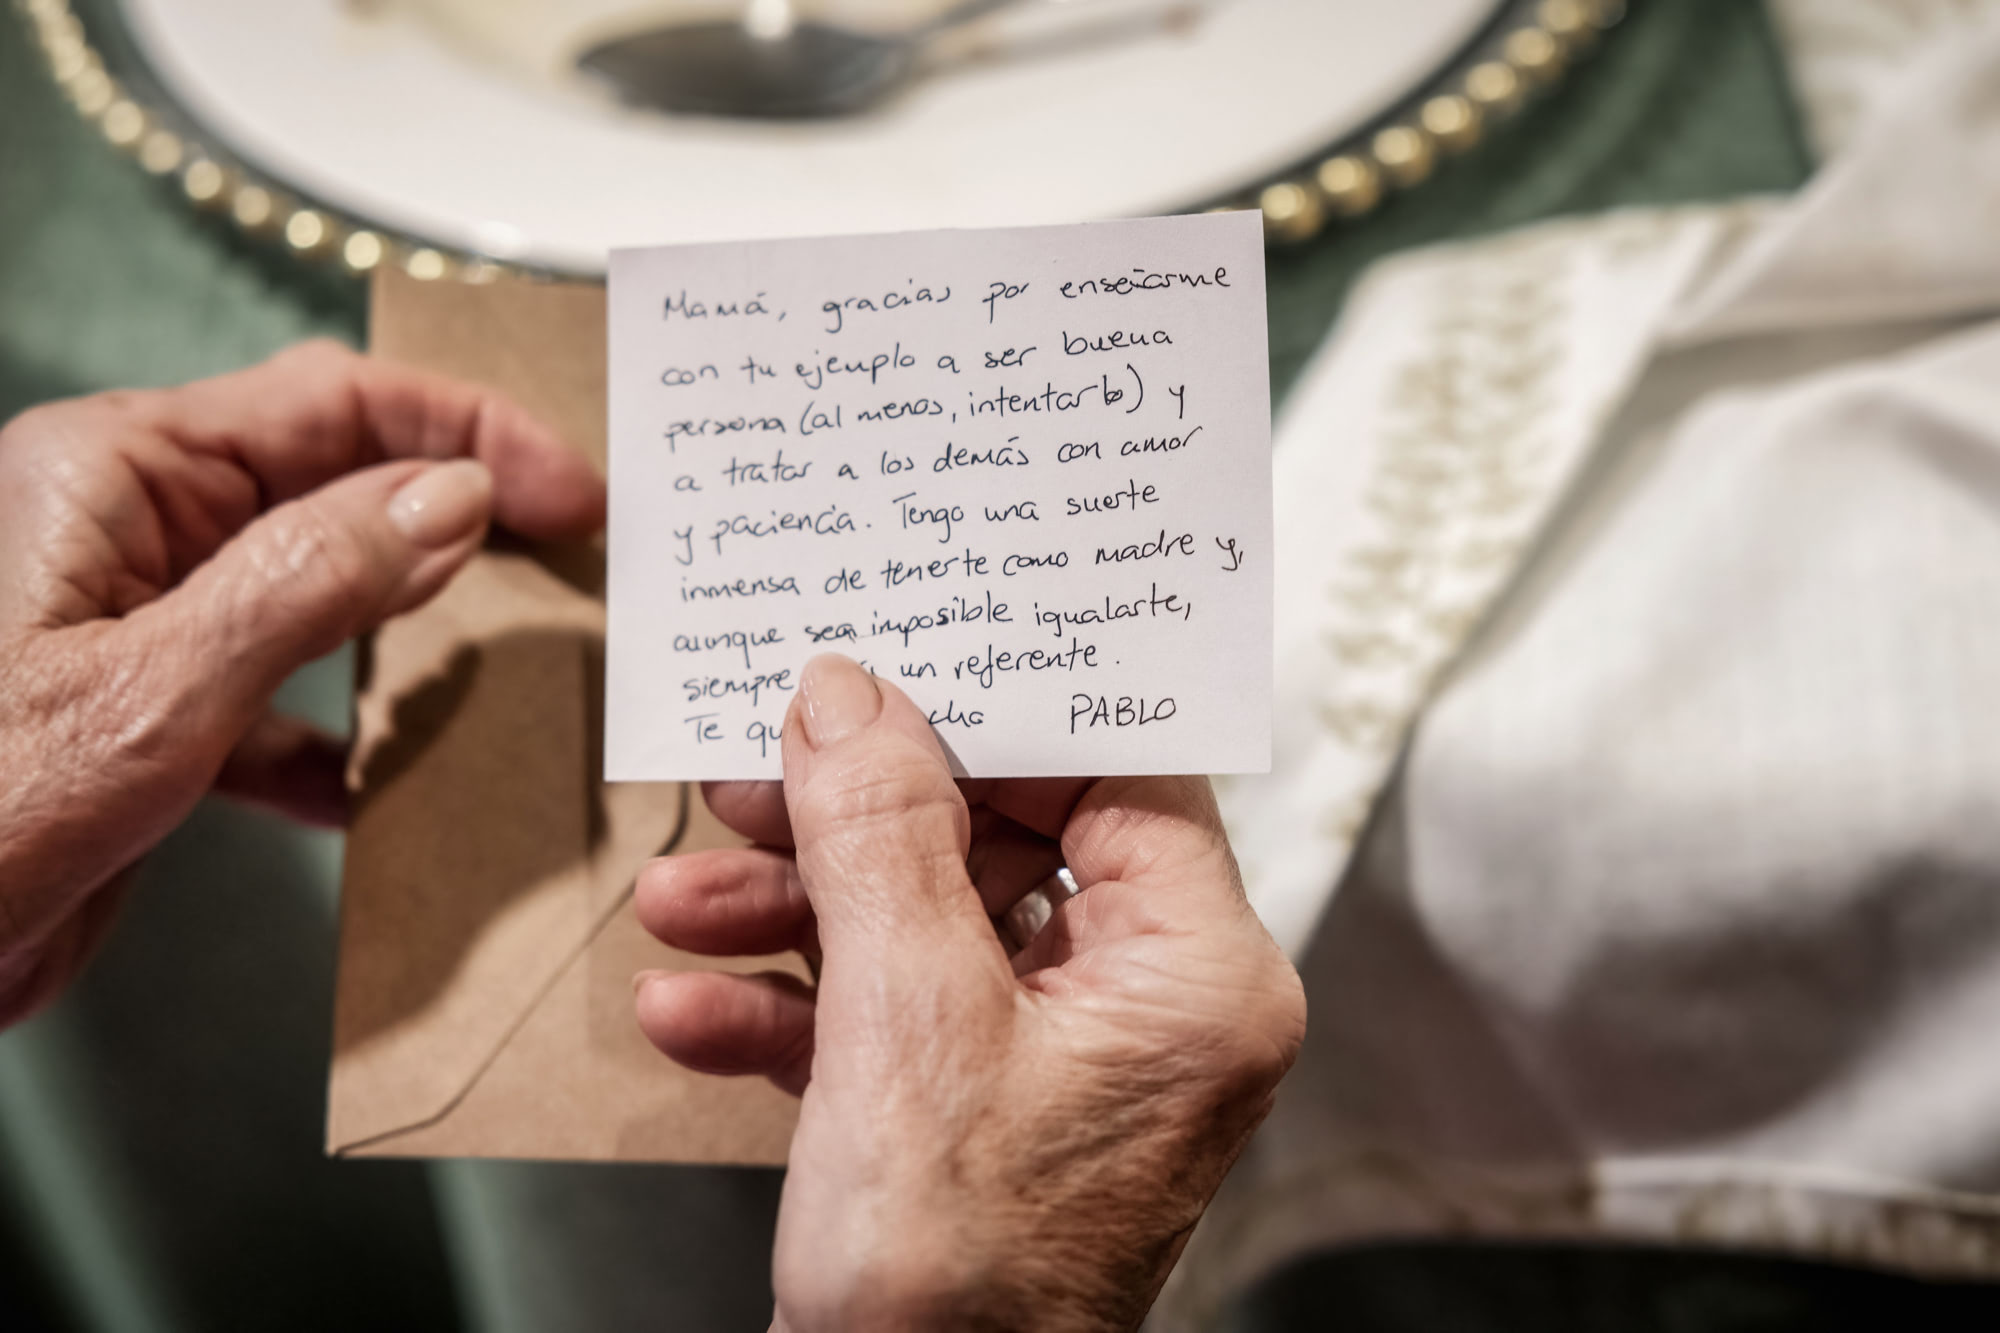 Mamá, gracias por enseñarme
con tu ejemplo a ser buena
persona (al menos, intentarlo) y
a tratar a los demás con amor
y paciencia. Tengo una suerte
inmensa de tenerte como madre y,
aunque sea imposible igualarte,
siempre un referente.
Te PABLO